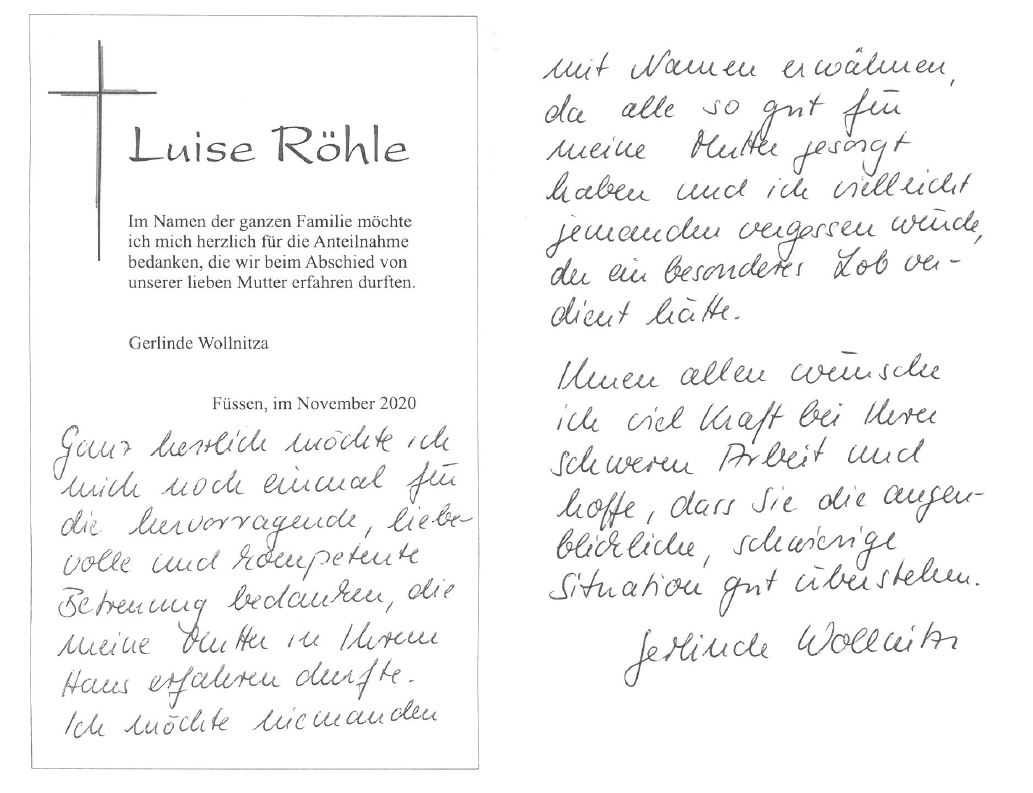 Luise Röhle
Im Namen der ganzen Familie möchte
ich mich herzlich für die Anteilnahme
bedanken, die wir beim Abschied von
unserer lieben Mutter erfahren durften.
Gerlinde Wollnitza
Füssen, im November 2020
Ganz herzlich möchte ich
mich noch einmal für
die hervorragende, liebe-
volle und kompetente
Betreuung bedanken, die
meine Mutter in Ihrem
Haus erfahren durfte.
Ich möchte niemanden
mit Namen erwähnen,
da alle so gut für
meine Mutter gesorgt
haben und ich vielleicht
jemanden vergessen würde,
der ein besonderes Lob ver-
dient hätte.
Ihnen allen wünsche
ich viel Kraft bei Ihrer
schweren Arbeit und
hoffe, dass Sie die augen-
blickliche, schwierige
Situation gut überstehen.
Gerlinde Wollnitza